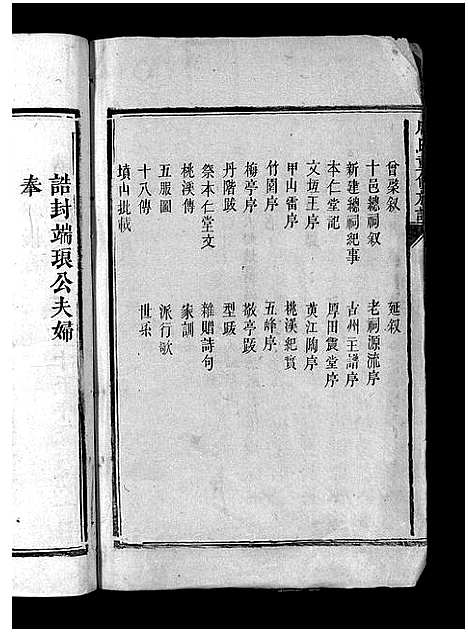 曾棨叙
十邑總祠叙
新建總祠紀事
本仁堂記
文垣王序
甲山雷序
竹園序
梅亭序
丹階跋
祭本仁堂文
桃溪傳
五服圖
十八傳
墳山批載
延叙
老祠源流序
古州王譜序
厚田震堂序
黄江陶序
桃溪紀實
五峰序
敬亭跋
型跋
雜贈詩句
家訓
派行歌
世系
誥封端琅公夫婦
奉